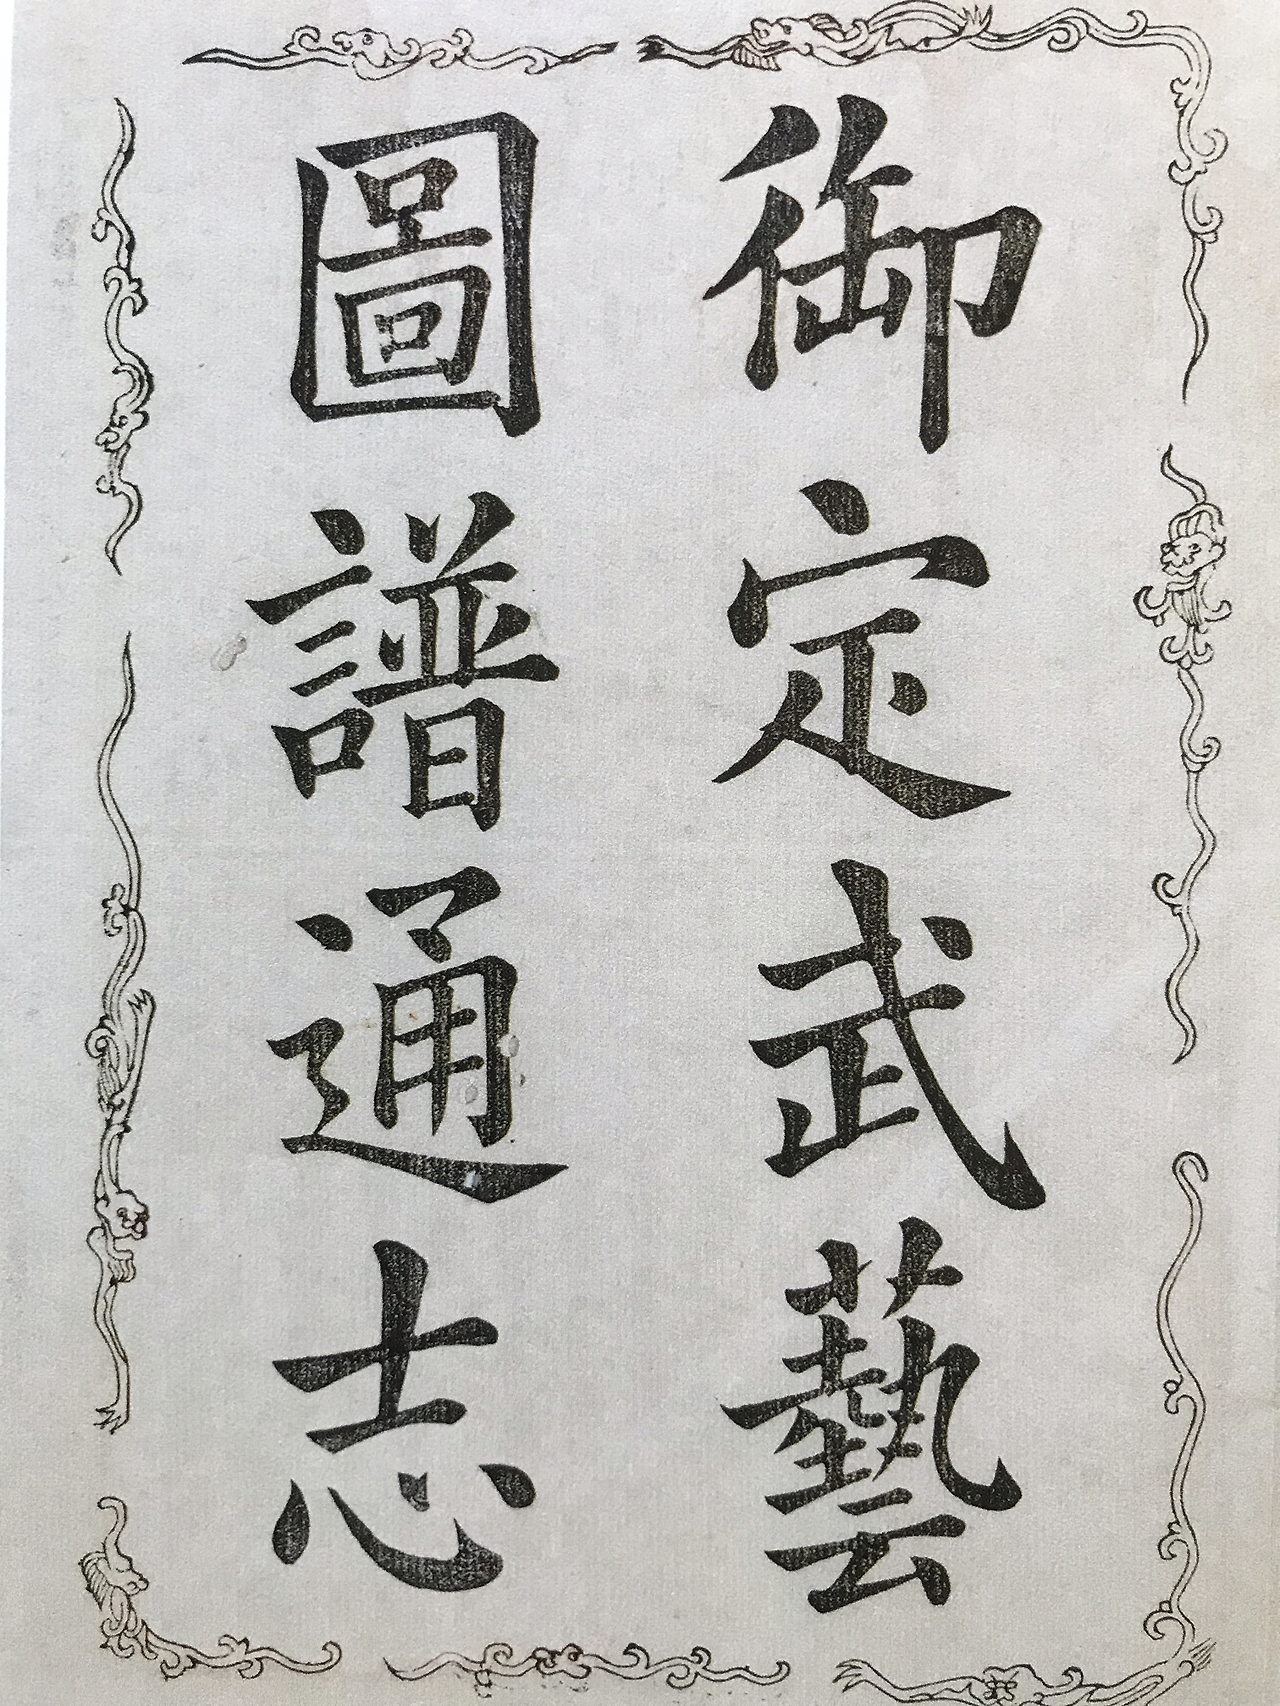 御定武藝
圖譜通志